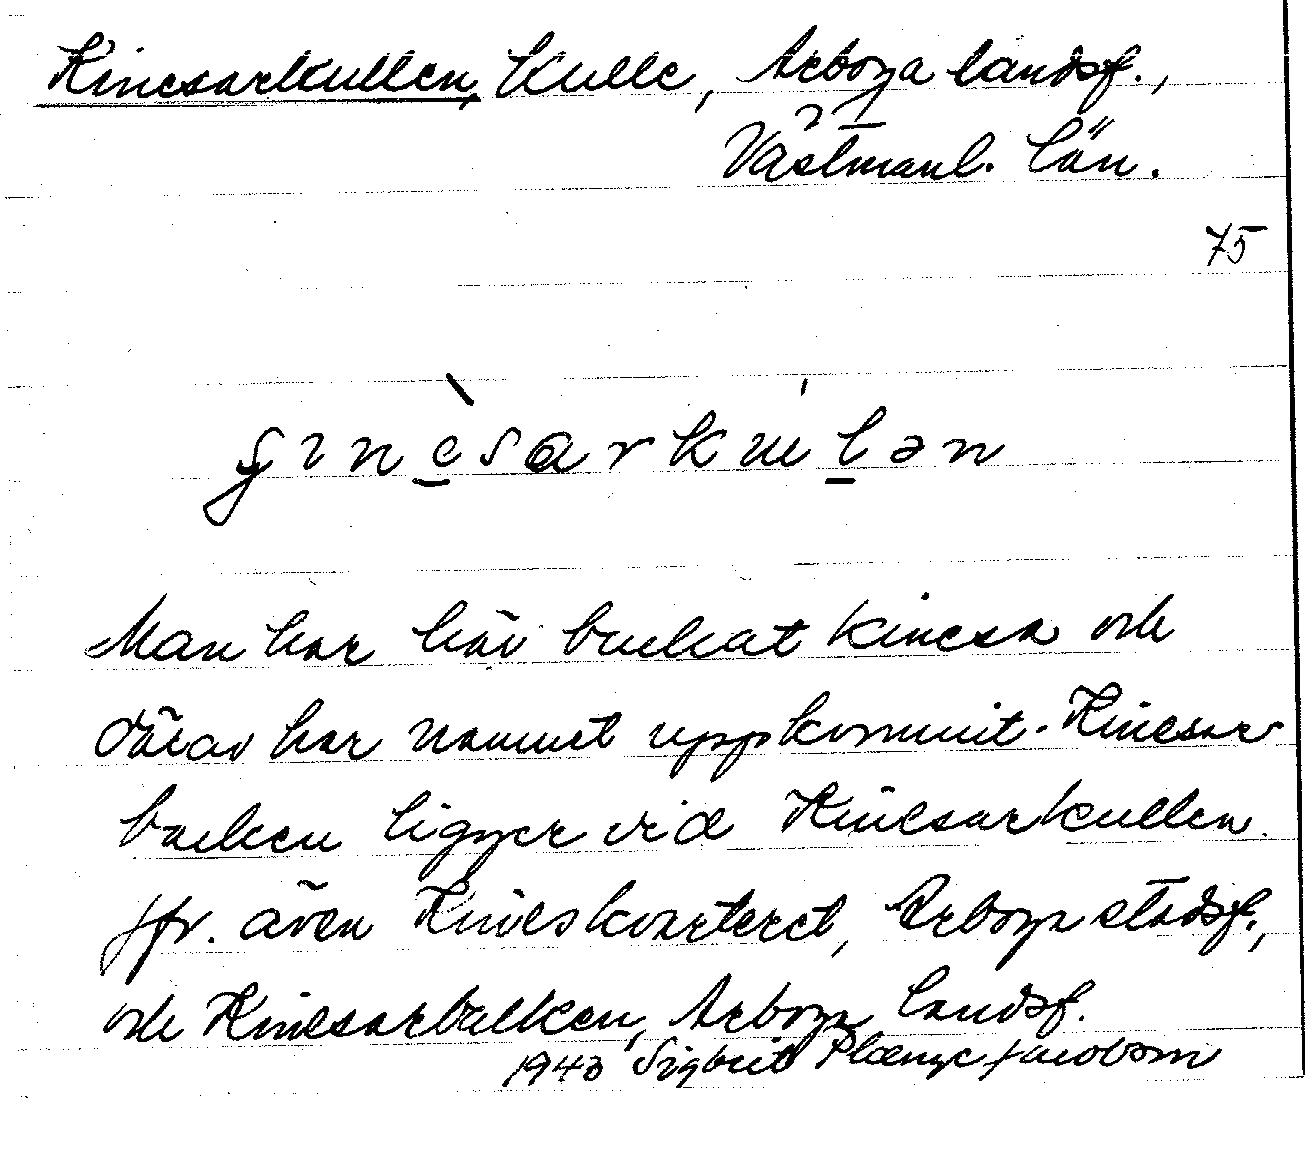 Kinesarkullen, kulle, Arboga landsf.,
Västmanl. län.
75
Man har här burkat kinesa och
därav har namnet uppkommit. Kinesar
backen ligger vid Kinesarkullen.
Jfr. även Kineskvarteret, Arboga stadsf.,
och Kinesarbacken, Arboga landsf.
1943 Sigbrit Plænge Jacobson